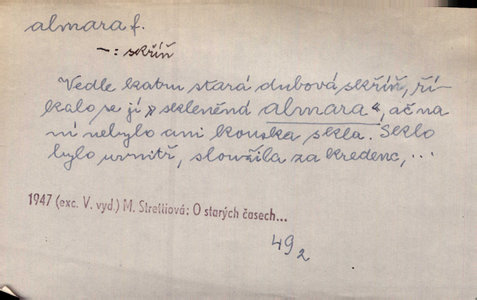 almara f.
—: skříň
Vedle kamen stará dubová skříň, ří-
kalo se jí „skleněná almara“, ač na
ní nebylo ani kouska skla. Sklo
bylo uvnitř, sloužila za kredenc, ...
1947 (exc. V. vyd.) M. Stretiová: O starých časech...
49₂